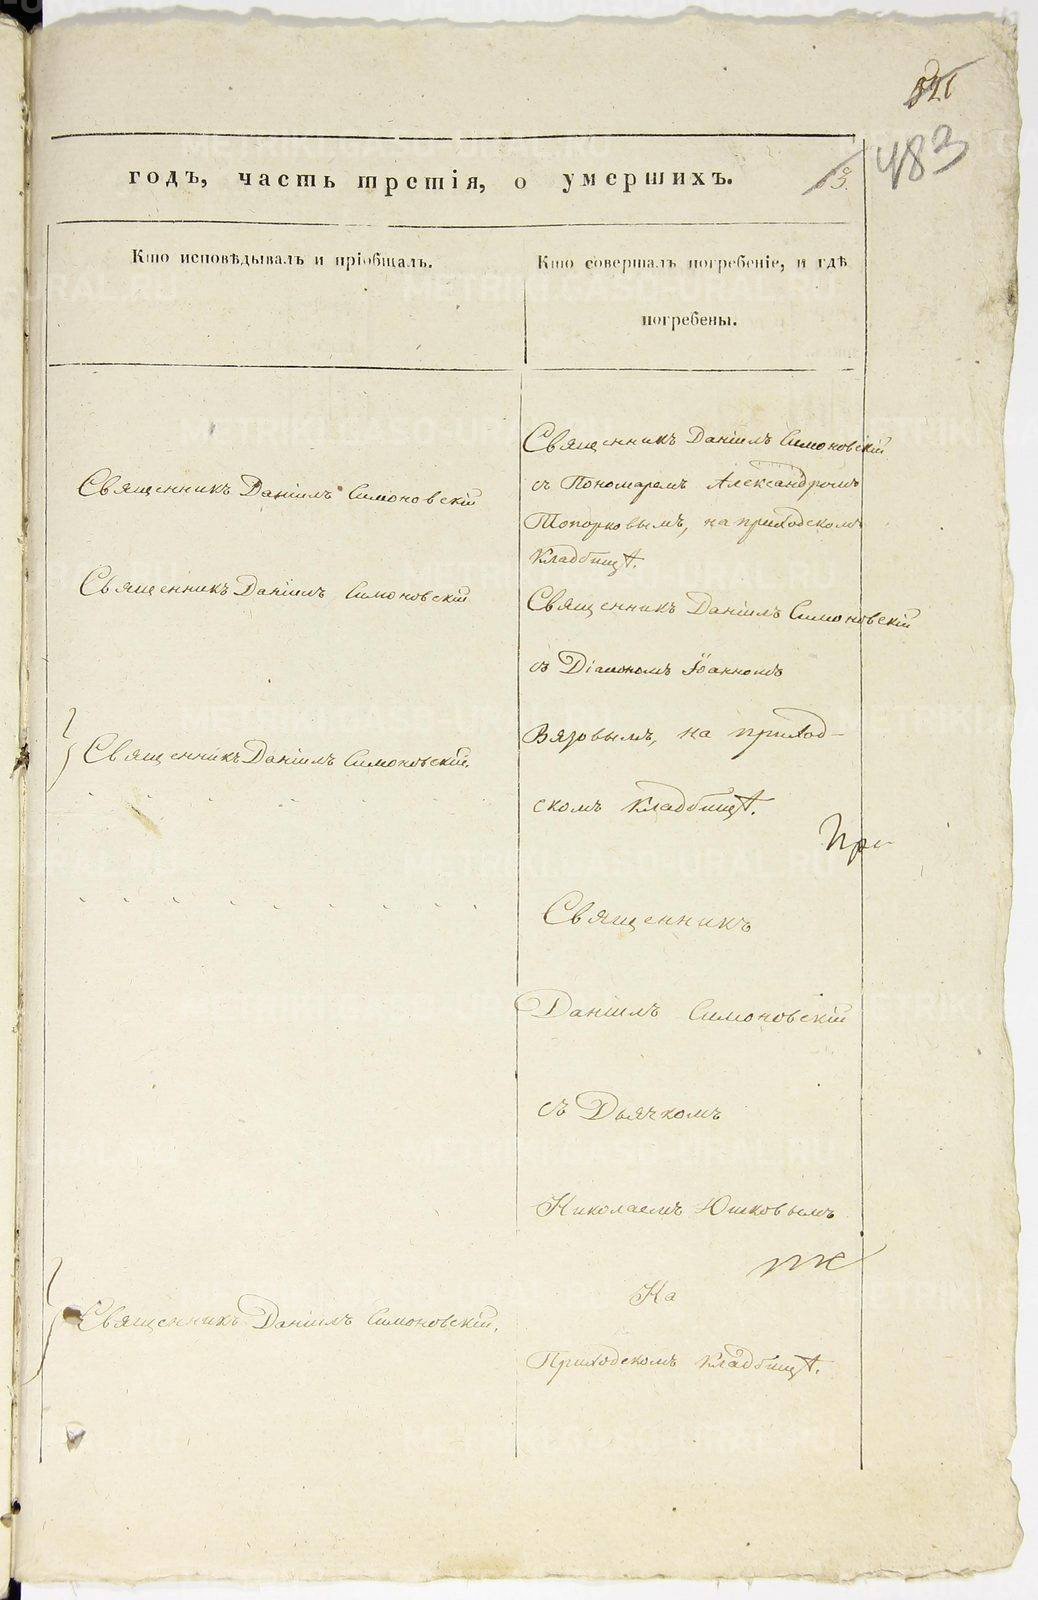 483
годъ, часть третія, о умершихъ.
Кто исповѣдывалъ и пріобщалъ.
Кто совершалъ погребеніе, и гдѣ
погребены.
Священникъ Даніилъ Симоновскій
Священникъ Даніилъ Симоновскій
Священникъ Даніилъ Симоновскій.
Священникъ Даніилъ Симоновскій.
Священникъ Даніилъ Симоновскій
съ Пономаремъ Александромъ
Топорковымъ, на приходскомъ
кладбищѣ.
Священникъ Даніилъ Симоновскій
съ Діакономъ Іоанномъ
Вязовымъ, на приход-
скомъ кладбищѣ.
Священникъ
Даніилъ Симоновскій
съ Дьячкомъ
Николаемъ Юшковымъ
На
Приходскомъ кладбищѣ.
METRIKI.GASO-URAL.RU